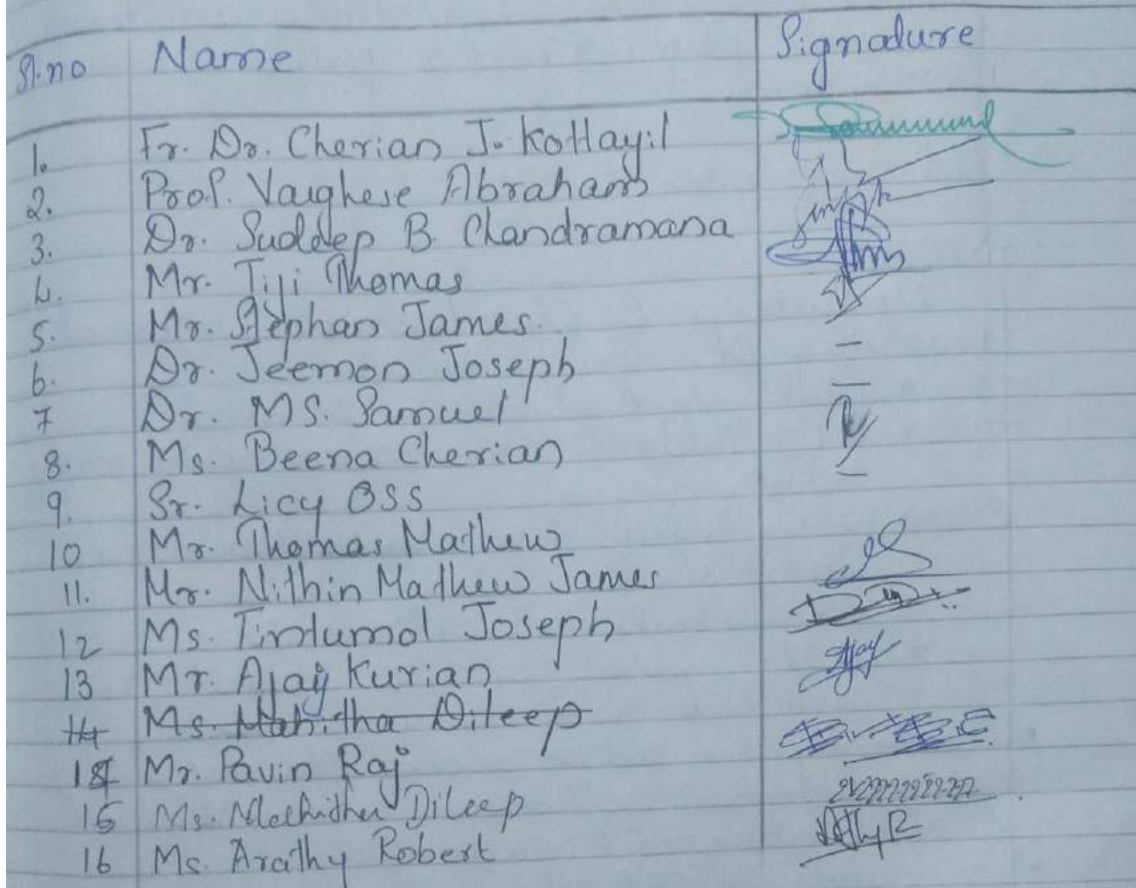 Sl.no Name Signature
1. Fr. Dr. Cherian J. Kottayil
2. Prof. Varghese Abraham
3. Dr. Sudeep B. Chandramana
4. Mr. Tiji Thomas
5. Mr. Stephan James.
6. Dr. Jeemon Joseph -
7 Dr. MS. Samuel -
8. Ms. Beena Cherian
9. Sr. Licy OSS -
10 Mr. Thomas Mathew
11. Mr. Nithin Mathew James
12 Ms. Tintumol Joseph
13 Mr. Ajay Kurian Ajay
14 Ms. Mahitha Dileep
14 Mr. Pavin Raj
15 Ms. Mahitha Dileep
16 Ms. Arathy Robert